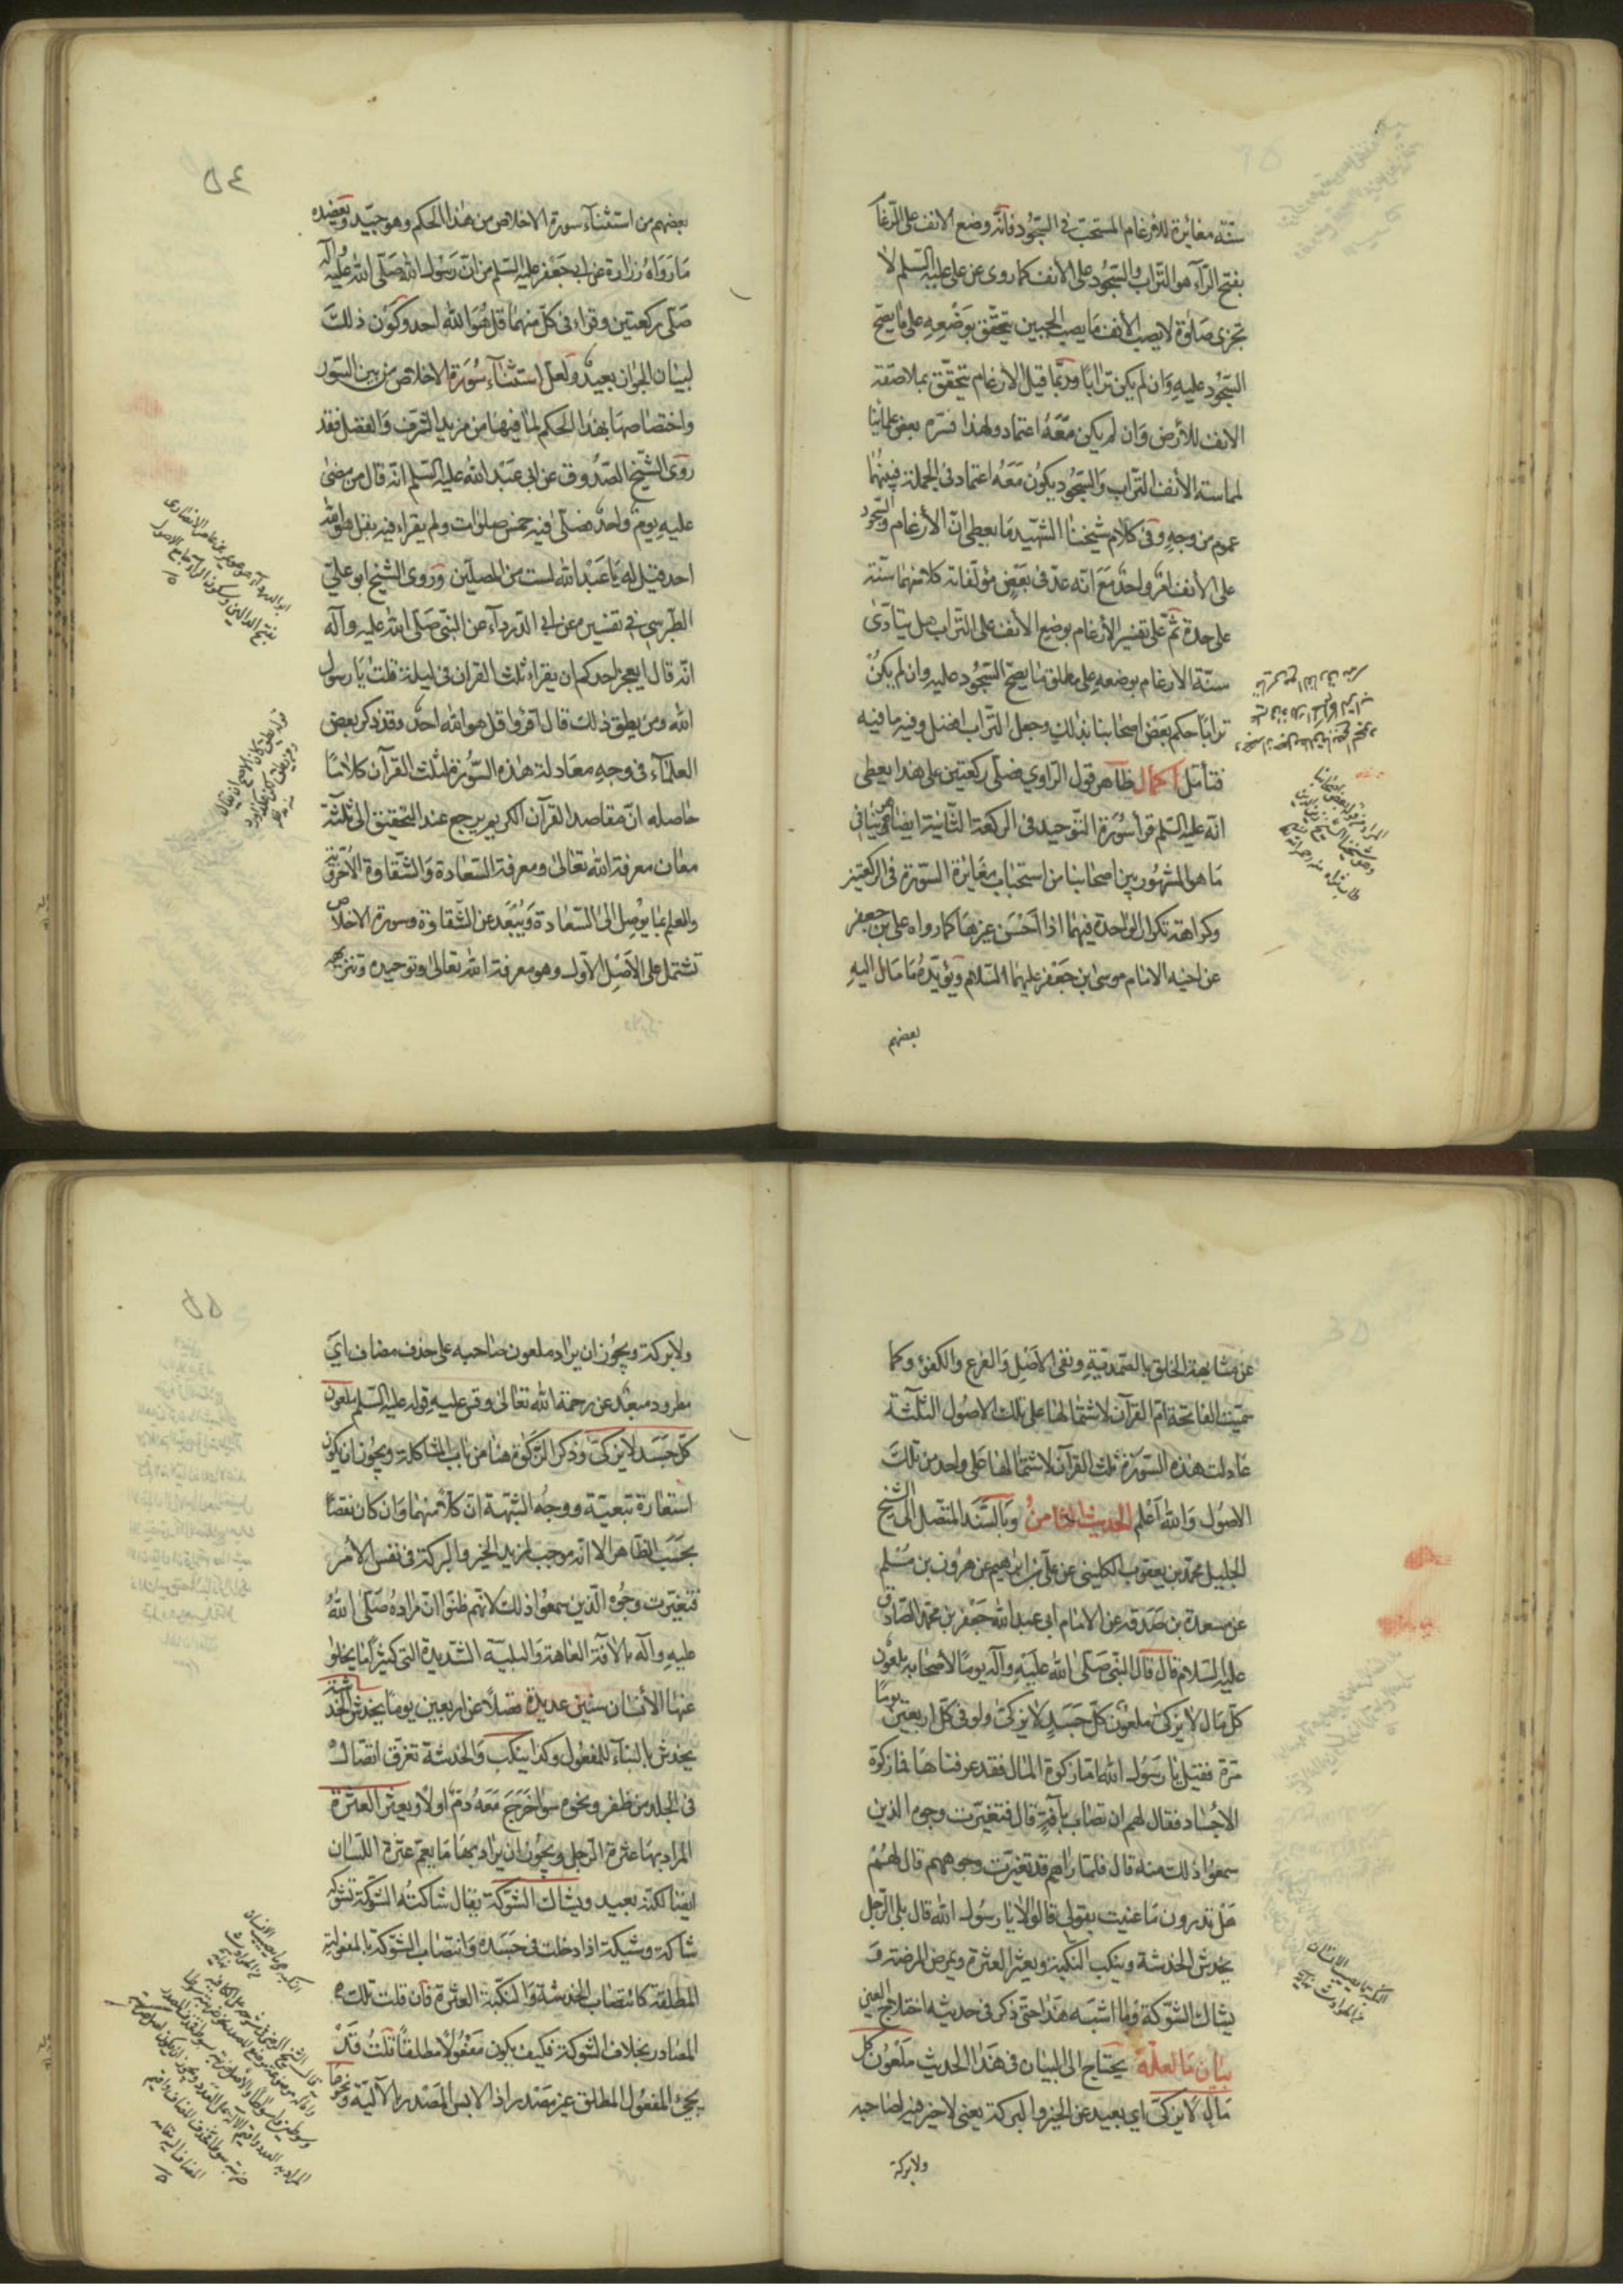 سنته مغائرة للارغام المستحب فى السّجود فانّه وضع الانف على الرّغام
بفتح الرّآء هو التراب والسّجود على الانف كما روى عن على عليه السّلم لا
تجزى صلوة لا يصيب الأنف ما يصيب الجبين يتحقق بوضعه على ما يصح
السّجود عليه وان لم يكن ترابا وربّما قيل الارغام يتحقق بملاصقة
الانف للأرض وان لم يكن معه اعتماد ولهذا فسّره بعض علمائنا
لمماسته الأنف التراب والسّجود يكون معه اعتماد فى الجملة فبينهما
عموم من وجه وفى كلام شيخنا الشّهيد ما يعطى انّ الأرغام والسّجود
على الأنف امر واحد مع انّه عدّ فى بعض مؤلّفاته كلّا منهما سنّة
على حدة ثمّ على تفسير الأرغام بوضع الأنف على التراب هل يتادّى
سنّة الارغام بوضعه على مطلق ما يصحّ السّجود عليه وان لم يكن
ترابا حكم بعض اصحابنا بذلك وجعل التّراب افضل وفيه ما فيه
فتأمّل اكمال ظاهر قول الراوى فصلّى ركعتين على هذا يعطى
انّه عليه السّلم قرأ سورة التّوحيد فى الركعة الثّانية ايضا وهو ينافى
ما هو المشهور بين اصحابنا من استحباب مغايرة السّورة فى الركعتين
وكراهة تكرار الواحدة فيهما اذا احسن غيرها كما رواه على بن جعفر
عن اخيه الامام موسى بن جعفر عليهما السّلام ويؤيّده ما مال اليه
بعضهم
٥٤
بعضهم من استثنآء سورة الاخلاص من هذا الحكم وهو جيّد ويعضده
ما رواه زرارة عن ابى جعفر عليه السّلم من انّ رسول الله صلّى الله عليه وآله
صلّى ركعتين وقراء فى كلّ منهما قل هو الله احد وكون ذلك
لبيان الجواز بعيد ولعلّ استثنآء سورة الاخلاص من بين السّور
واختصاصها بهذا الحكم لما فيها من مزيد الشّرف والفضل فقد
روى الشّيخ الصّدوق عن ابى عبد الله عليه السّلم انّه قال من مضى
عليه يوم واحد فصلّى فيه خمس صلوات ولم يقراء فيه بقل هو الله
احد قيل له يا عبد الله لست من المصلّين وروى الشيخ ابو علىّ
الطّبرسى فى تفسيره عن ابى الدّرداء عن النبى صلّى الله عليه وآله
انّه قال ايعجز احدكم ان يقراء ثلث القران فى ليلة قلت يا رسول
الله ومن يطيق ذلك قال اقرؤا قل هو الله احد وقد ذكر بعض
العلمآء فى وجه معادلة هذه السّورة لثلث القرآن كلاما
حاصله انّ مقاصد القرآن الكريم يرجع عند التّحقيق الى ثلثة
معان معرفة الله تعالى ومعرفة السّعادة والشّقاوة الأخرويّة
والعلم بما يوصل الى السّعادة ويبعد عن الشّقاوة وسورة الاخلاص
تشتمل على الأصل الأول وهو معرفة الله تعالى وتوحيده وتنزيهه
عن مشابهة الخلق بالصّمديّة ونفى الأصل والفرع والكفؤ وكما
سمّيت الفاتحة امّ القرآن لاشتمالها على تلك الاصول الثلثة
عادلت هذه السّورة ثلث القرآن لاشتمالها على واحد من تلك
الاصول والله اعلم الحديث الثامن وبالسّند المتّصل الى الشّيخ
الجليل محمّد بن يعقوب الكلينى عن علىّ بن ابراهيم عن هرون بن مسلم
عن مسعدة بن صدقه عن الامام ابى عبد الله جعفر بن محمّد الصّادق
عليه السلام قال قال النّبى صلّى الله عليه وآله يوما لأصحابه ملعون
كلّ مال لا يزكّى ملعون كلّ جسد لا يزكّى ولو فى كلّ اربعين يوما
مرّة فقيل يا رسول الله امّا زكوة المال فقد عرفناها فما زكوة
الأجساد فقال لهم ان تصاب بآفة قال فتغيّرت وجوه الذين
سمعوا ذلك منه قال فلمّا راهم قد تغيّرت وجوههم قال لهم
هل تدرون ما عنيت بقولى قالوا لا يا رسول الله قال بلى الرّجل
يخدش الخدشة وينكب النكبة ويعثر العثرة ويمرض المرضة و
يشاك الشّوكة وما اشبه هذا حتّى ذكر فى حديثه اختلاج العين
بيان ما لعلّه يحتاج الى البيان فى هذا الحديث ملعون كل
مال لا يزكّى اى بعيد عن الخير والبركة يعنى لا خير فيه لصاحبه
ولا بركة
٥٥
ولا بركة ويجوز ان يراد ملعون صاحبه على حذف مضاف اى
مطرود مبعّد عن رحمة الله تعالى وقس عليه قوله عليه السّلم ملعون
كلّ جسد لا يزكّى وذكر الزّكوة هنا من باب المشاكلة ويجوز ان يكون
استعارة تبعيّة ووجه الشّبه انّ كلّا منهما وان كان نقصا
بحسب الظّاهر الا انّه موجب لمزيد الخير والبركة فى نفس الأمر
فتغيّرت وجوه الّذين سمعوا ذلك لانّهم ظنّوا انّ مراده صلّى الله
عليه وآله بالآفة العاهة والبليّة الشّديدة التى كثيرا ما يخلوا
عنها الأنسان سنين عديدة فضلا عن اربعين يوما يخدش الخدشة
يخدش بالبناء للمفعول وكذا ينكب والخدشة تفرّق اتّصال
فى الجلد من ظفر ونحوه سوا خرج معه دم اولا ويعثر العثرة
المراد بها عثرة الرّجل ويجوز ان يراد بها ما يعم عثرة اللّسان
ايضا لكنّه بعيد ويشاك الشّوكة يقال شاكته الشّوكة تشوكه
شاكة وشيكة اذا دخلت فى جسده وانتصاب الشّوكة بالمفعوليّة
المطلقة كانتصاب الخدشة والنكبة العثرة فان قلت تلك
المصادر بخلاف الشوكة فكيف يكون مفعولا مطلقا قلت قد
يجئ المفعول المطلق غير مصدر اذا لابس المصدر بالآليّة ونحوها